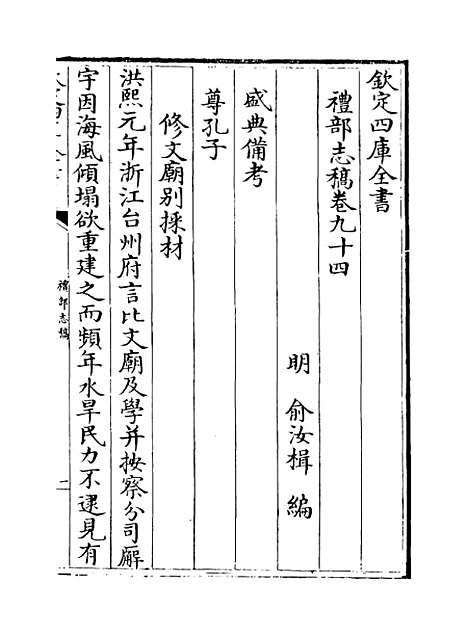 欽定四庫全書
禮部志稿卷九十四
明 俞汝楫 編
盛典備考
尊孔子
修文廟別採材
洪熙元年浙江台州府言比文廟及學并按察分司廨
宇因海風傾塌欲重建之而頻年水旱民力不逮見有
禮部志稿
二